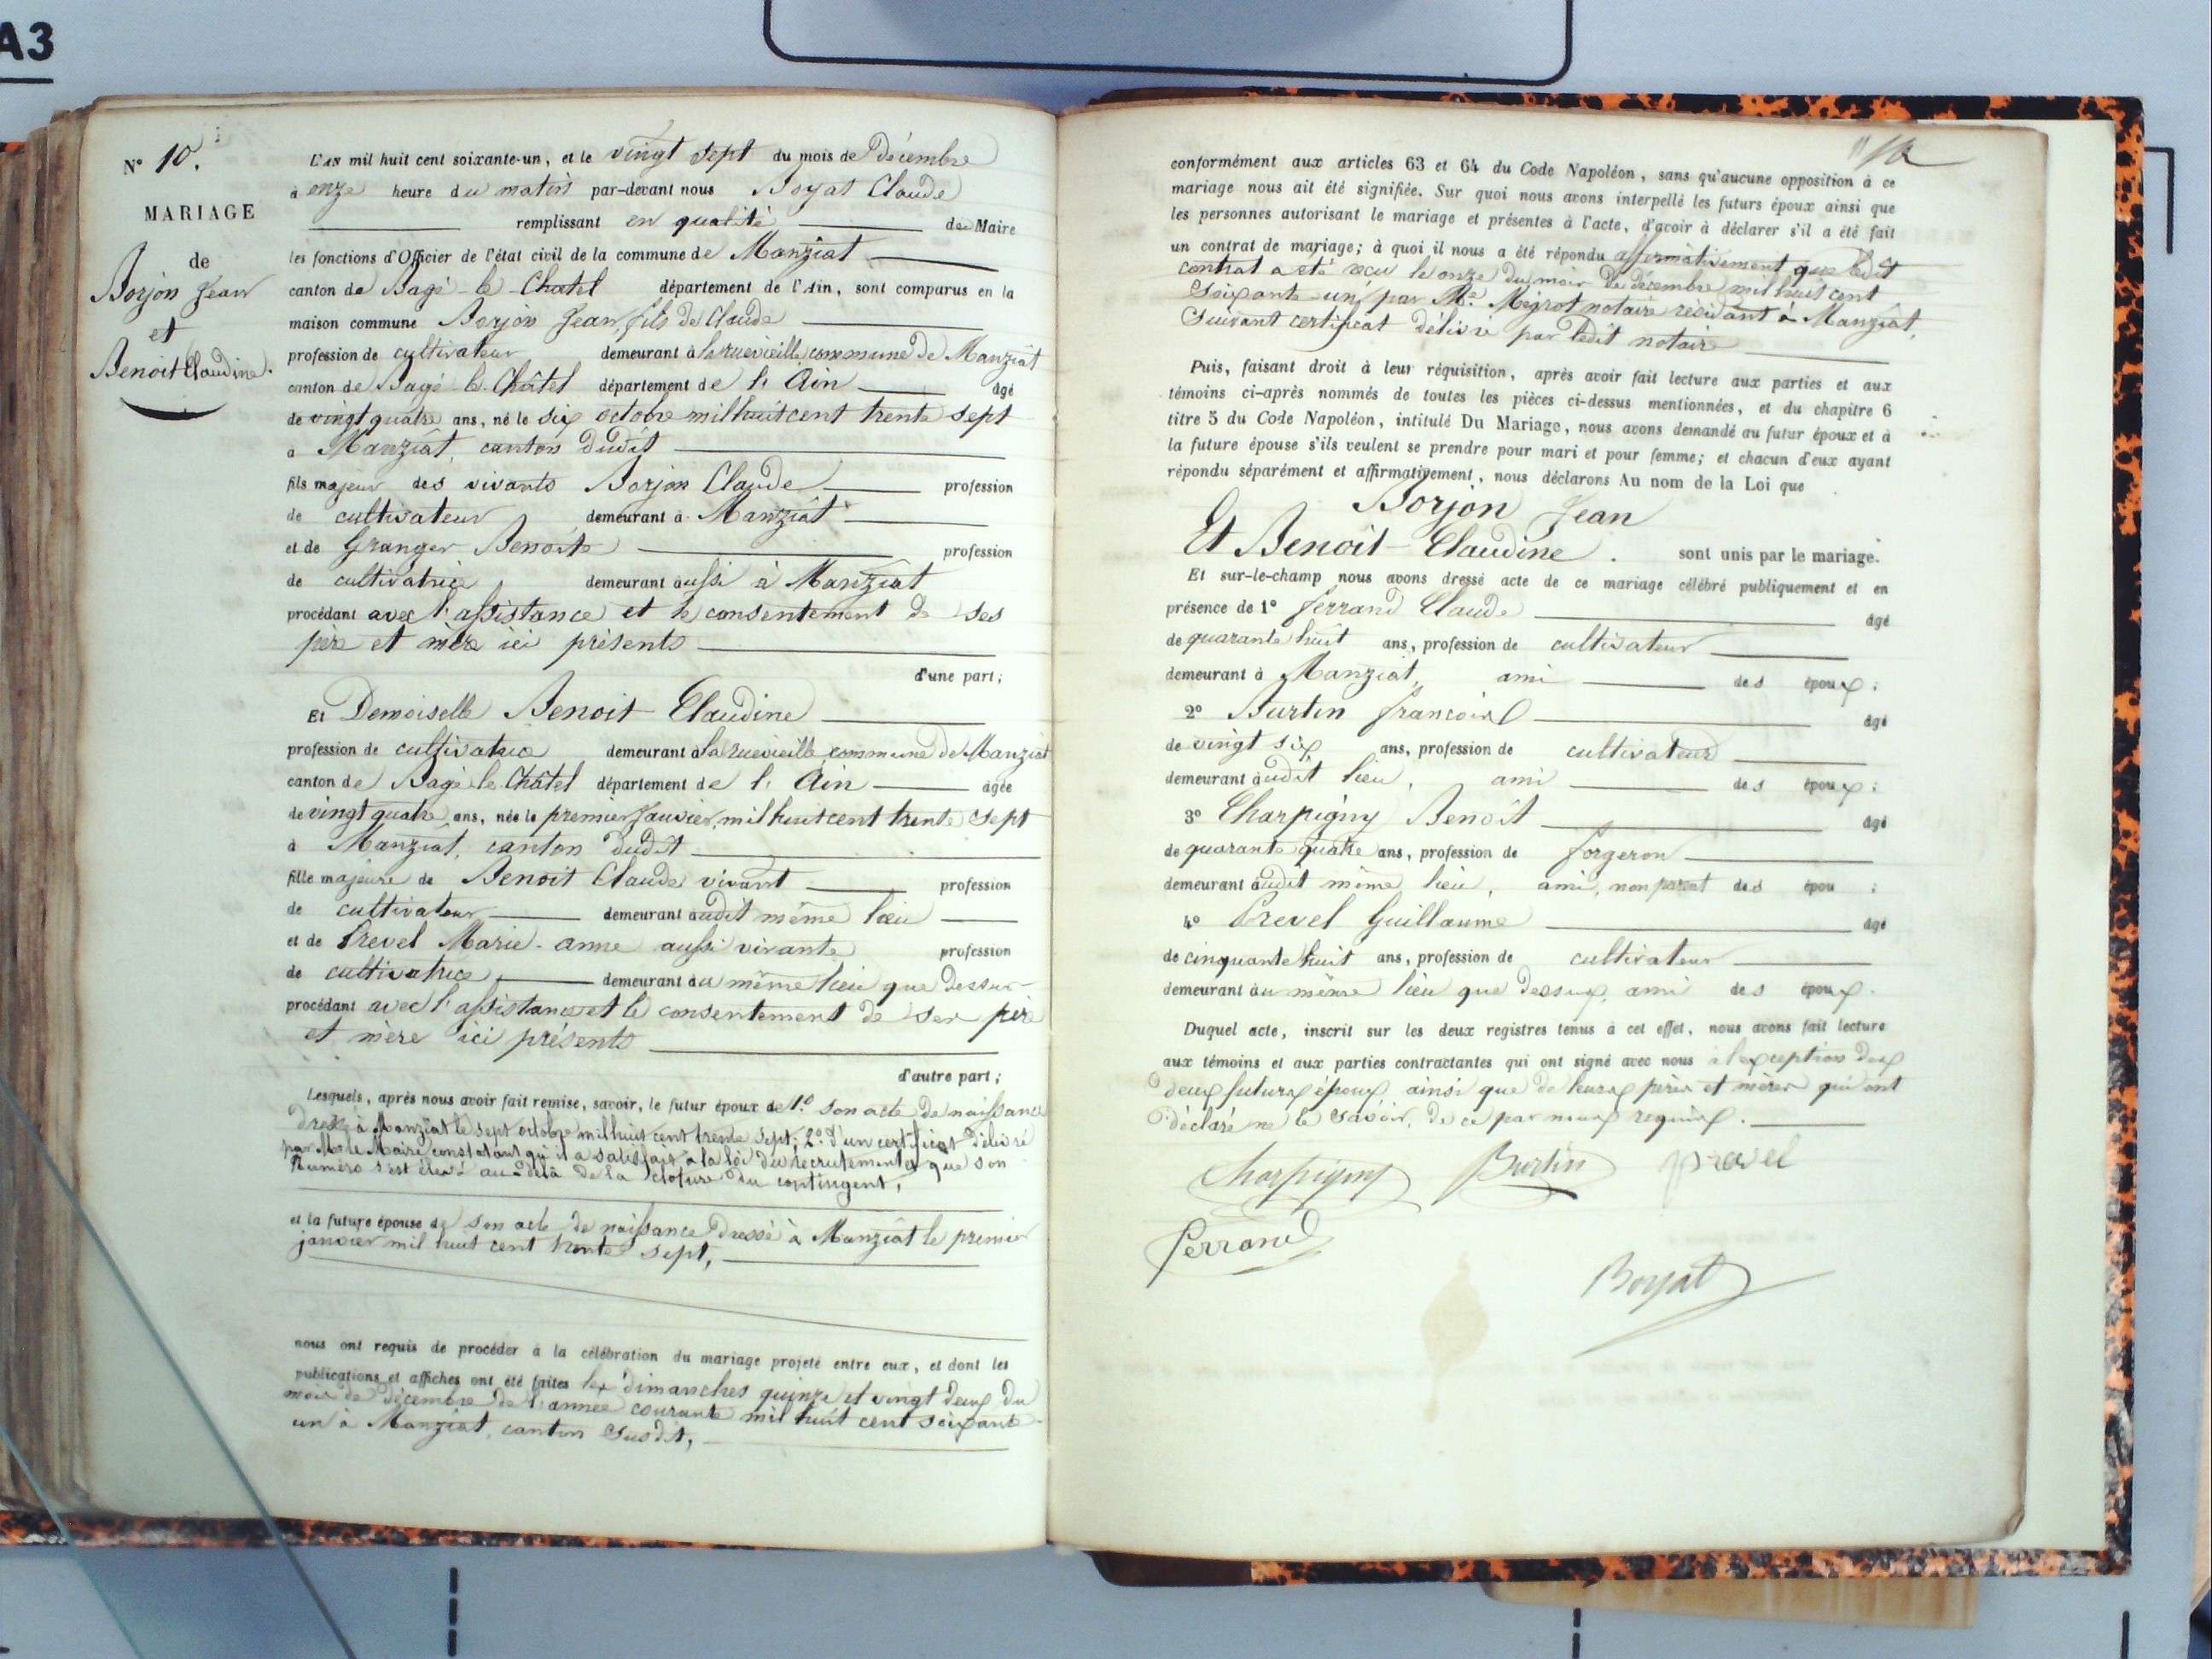 A3
N° 10.
MARIAGE
de
Borjon Jean
et
Benoit Claudine.
L'AN mil huit cent soixante-un, et le vingt sept du mois de décembre
à onze heure du matin par-devant nous Boyat Claude
remplissant en qualité de Maire
les fonctions d'Officier de l'état civil de la commune de Manziat
canton de Bagé-le-Chatel département de l'Ain, sont comparus en la
maison commune Borjon Jean, fils de Claude
profession de cultivateur demeurant à la rue vieille, commune de Manziat
canton de Bagé-le-Châtel département de l'Ain âgé
de vingt quatre ans, né le six octobre mil huit cent trente sept
à Manziat, canton dudit
fils majeur des vivants Borjon Claude profession
de cultivateur demeurant à Manziat
et de Granger Benoite profession
de cultivatrice demeurant aussi à Manziat
procédant avec l'assistance et le consentement de ses
père et mère ici présents
d'une part;
Et Demoiselle Benoit Claudine
profession de cultivatrice demeurant à la rue vieille, commune de Manziat
canton de Bagé-le-Châtel département de l'Ain âgée
de vingt quatre ans, née le premier Janvier, mil huit cent trente sept
à Manziat, canton dudit
fille majeure de Benoit Claude vivant profession
de cultivateur demeurant audit même lieu
et de Prevel Marie-anne aussi vivante profession
de cultivatrice demeurant au même lieu que dessus
procédant avec l'assistance et le consentement de ses père
et mère ici présents
d'autre part;
Lesquels, après nous avoir fait remise, savoir, le futur époux de 1.° son acte de naissance
dressé à Manziat le sept octobre mil huit cent trente sept; 2.° d'un certificat délivré
par Mr le Maire constatant qu'il a satisfait à la loi du recrutement et que son
Numéro s'est élevé au-delà de la cloture du contingent,
et la future épouse de son acte de naissance dressé à Manziat le premier
janvier mil huit cent trente sept,
nous ont requis de procéder à la célébration du mariage projeté entre eux, et dont les
publications et affiches ont été faites les dimanches quinze et vingt deux du
mois de décembre de l'année courante mil huit cent soixante-
un à Manziat, canton susdit,
conformément aux articles 63 et 64 du Code Napoléon, sans qu'aucune opposition à ce
mariage nous ait été signifiée. Sur quoi nous avons interpellé les futurs époux ainsi que
les personnes autorisant le mariage et présentes à l'acte, d'avoir à déclarer s'il a été fait
un contrat de mariage; à quoi il nous a été répondu affirmativement que ledit
contrat a été recu le onze du mois de décembre mil huit cent
soixante-un, par Me notaire résidant à Manziat,
suivant certificat délivré par ledit notaire
Puis, faisant droit à leur réquisition, après avoir fait lecture aux parties et aux
témoins ci-après nommés de toutes les pièces ci-dessus mentionnées, et du chapitre 6
titre 5 du Code Napoléon, intitulé Du Mariage, nous avons demandé au futur époux et à
la future épouse s'ils veulent se prendre pour mari et pour femme; et chacun d'eux ayant
répondu séparément et affirmativement, nous déclarons Au nom de la Loi que
Borjon Jean
Et Benoit Claudine. sont unis par le mariage.
Et sur-le-champ nous avons dressé acte de ce mariage célébré publiquement et en
présence de 1° Ferrand Claude âgé
de quarante huit ans, profession de cultivateur
demeurant à Manziat, ami des époux;
2° Burtin françois âgé
de vingt six ans, profession de cultivateur
demeurant audit lieu, ami des époux;
3° Charpigny Benoît âgé
de quarante quatre ans, profession de forgeron
demeurant audit même lieu, ami, non parent des épou;
4° Prevel Guillaume âgé
de cinquante huit ans, profession de cultivateur
demeurant au même lieu que dessus, ami des époux.
Duquel acte, inscrit sur les deux registres tenus à cet effet, nous avons fait lecture
aux témoins et aux parties contractantes qui ont signé avec nous à l'exception des
deux futurs époux ainsi que de leurs pères et mères qui ont
déclaré ne le savoir, de ce par nous requis.
Charpigny Burtin prevel
Ferrand
Boyat